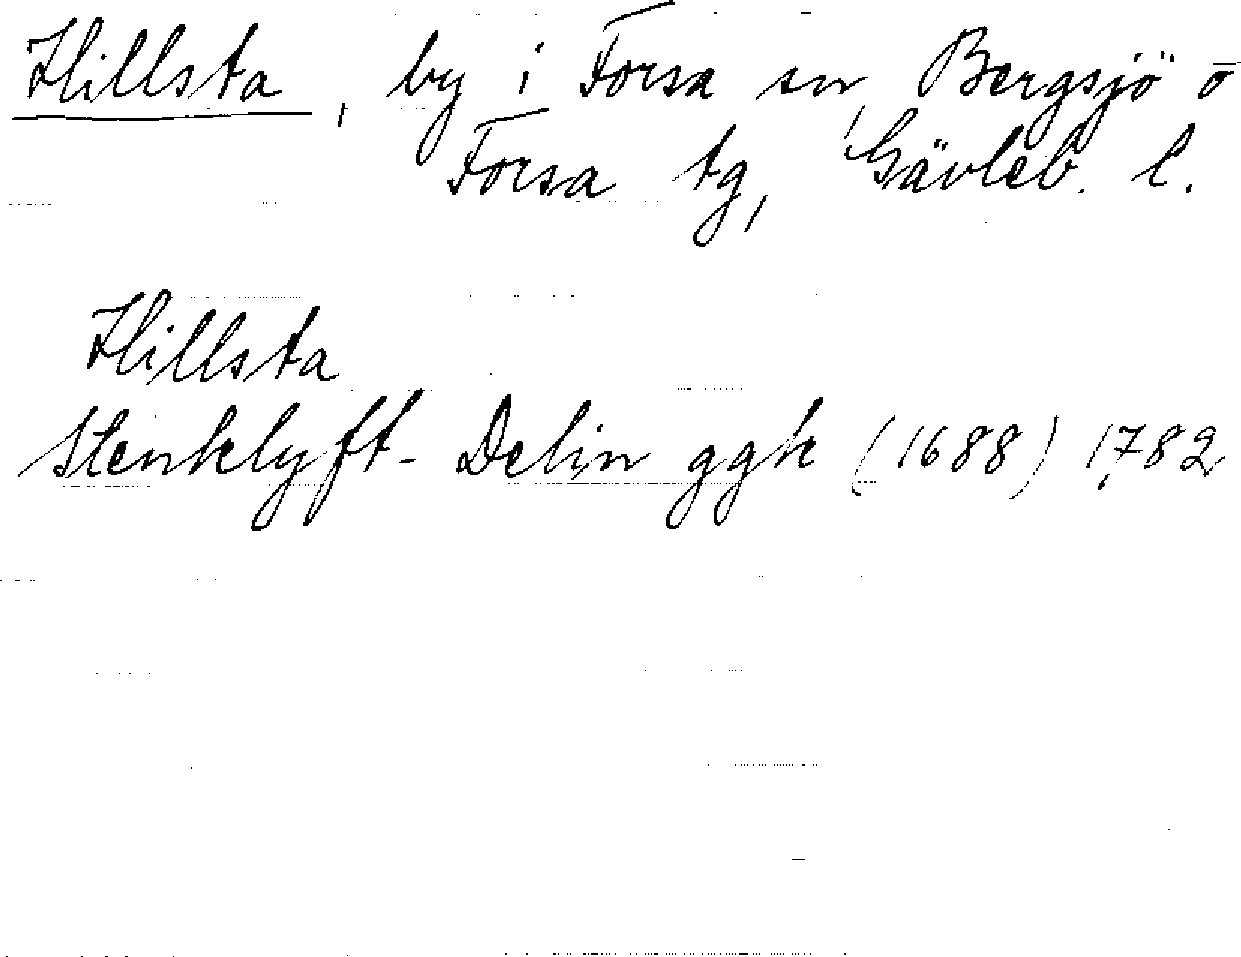 Hillsta, by i Forsa sn, Bergsjö o
Forsa tg, Gävleb. l.
Hillsta
Stenklyft- Delin ggk (1688) 1782